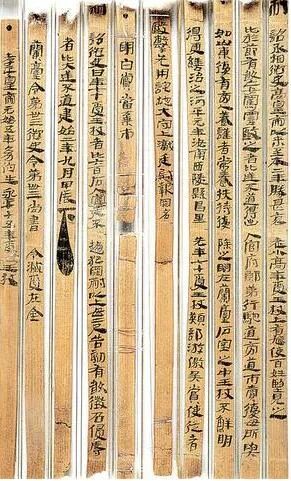 制詔丞相御史高皇帝以來至本二年勝甚哀老小高年受王杖上有鳩使百姓望見之
比於節有敢妄罵詈毆之者比逆不道得出入官府郎第行馳道旁道市賣復毋所與
如山東復有旁人養謹者常養扶持復除之明在蘭臺石室之中王杖不鮮明
得更繕治之河平元年汝南西陵縣昌里先年七十受王杖部游徼吳賞使從者
毆擊先用詫地大守上讞廷尉報罪名
明白賞當棄市
制詔御史曰年七十受王杖者比六百石入官廷不趨犯罪耐以上毋二尺告劾有敢徵召侵辱
者比大逆不道建始二年九月甲辰下
蘭臺令第卅三御史令第卌三尚書令滅受在金
孝平皇帝元始五年幼伯生永平十五年受王杖